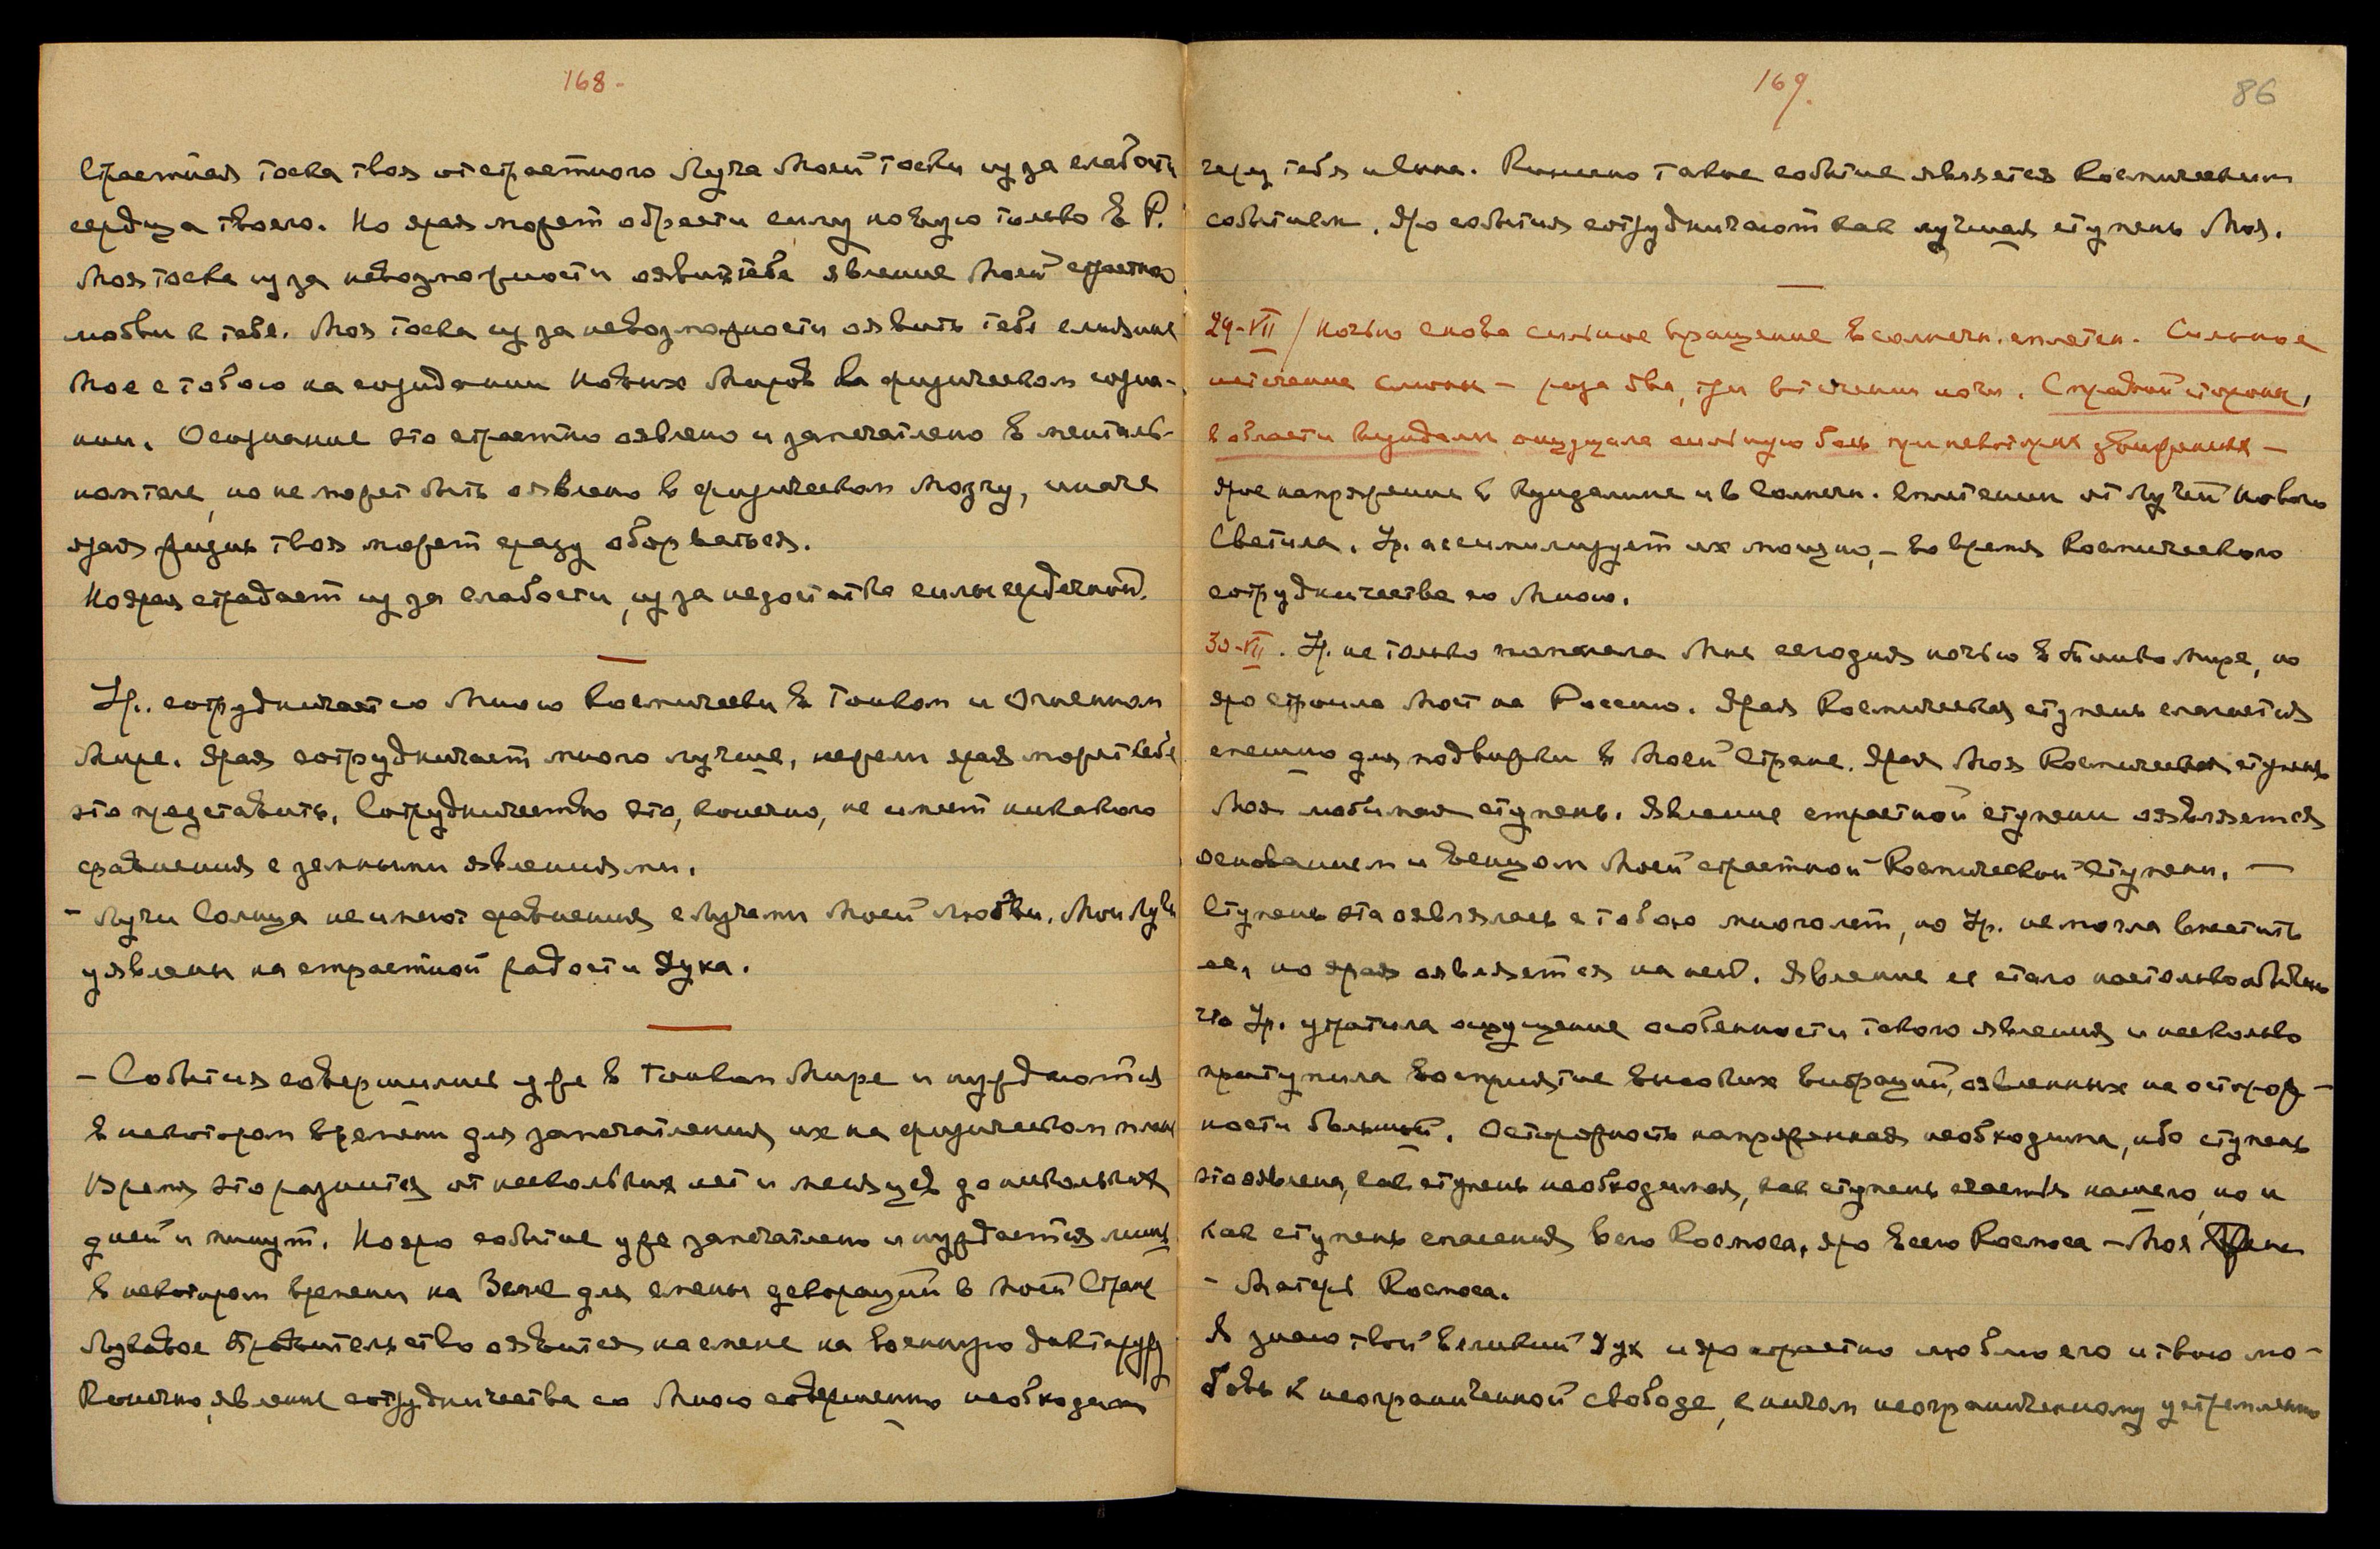 168-
Страстная тоска твоя от страстного Луча Моей тоски из за слабости
сердца твоего. Но ярая может обрести силу новую только в Р.
Моя тоска из за невозможности оявить тебе явление Моей страстной
любви к тебе. Моя тоска из за невозможности оявить тебе слияние
Мое с тобою на созидании Новых Миров на физическом созна-
нии. Осознание это страстно оявлено и запечатлено в менталь-
ном теле, но не может быть оявлено в физическом мозгу, иначе
ярая жизнь твоя может сразу оборваться.
Но ярая страдает из за слабости, из за недостатка силы сердечной.
Ур. сотрудничает со Мною Космически в Тонком и Огненном
Мире. Ярая сотрудничает много лучше, нежели ярая может себе
это представить. Сотрудничество это, конечно, не имеет никакого
сравнения с земными явлениями.
- Лучи Солнца не имеют сравнения с Лучами Моей Любви. Мои Лучи
уявлены на страстной радости Духа.
- События совершились уже в Тонком Мире и нуждаются
в некотором времени для запечатления их на физическом плане
Время это разнится от нескольких лет и месяцев до нескольких
дней и минут. Но яро событие уже запечатлено и нуждается лишь
в некотором времени на Земле для смены декораций в Моей Стране
Лукавое Правительство оявится на смене на военную диктатуру
Конечно, явление сотрудничества со Мною совершенно необходимо
169.
86
через тебя и Мною. Именно такое событие является Космическим
событием. Яро события сотрудничают как лучшая ступень Моя.
29-VII / Ночью снова сильное вращение в солнечн. сплетен. Сильное
истечение слюны - раза два, три в течении ночи. С правой стороны,
в области кундалини ощущала сильную боль при некоторых движениях -
Ярое напряжение в Кундалини и в Солнечн. сплетении от Лучей Нового
Светила. Ур. ассимилирует их мощно, - во время Космического
сотрудничества со Мною.
30-VII. Ур. не только помогала Мне сегодня ночью в Тонком Мире, но
яро строила Мост на Россию. Ярая Космическая ступень слагается
спешно для подвижки в Моей Стране. Ярая Моя Космическая ступень
Моя любимая ступень. Явление страстной ступени оявляется
основанием и венцом Моей страстной Космической Ступени. —
Ступень эта оявлялась с тобою много лет, но Ур. не могла вместить
ее, но ярая оявляется на ней. Явление ее стало настолько обычно
что Ур. утратила ощущение особенности такого явления и несколько
притупила восприятие высоких вибраций, оявленных на осторож-
ности большой. Осторожность напряженная необходима, ибо ступень
эта оявлена, как ступень необходимая, как ступень счастья нашего, но и
как ступень спасения всего Космоса, яро всего Космоса - Моя
- Матерь Космоса.
Я знаю твой великий Дух и яро страстно люблю его и твою лю-
бовь к неограниченной свободе, к ничем неограниченному устремлению